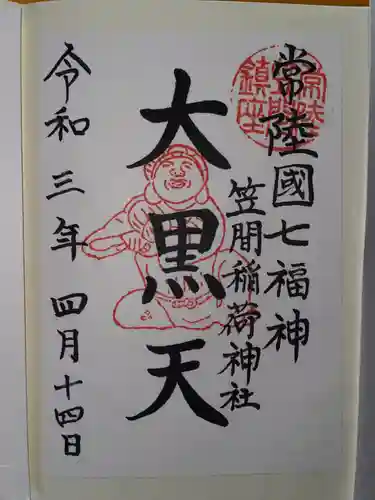 常陸國七福神
笠間稲荷神社
大黒天
令和三年四月十四日